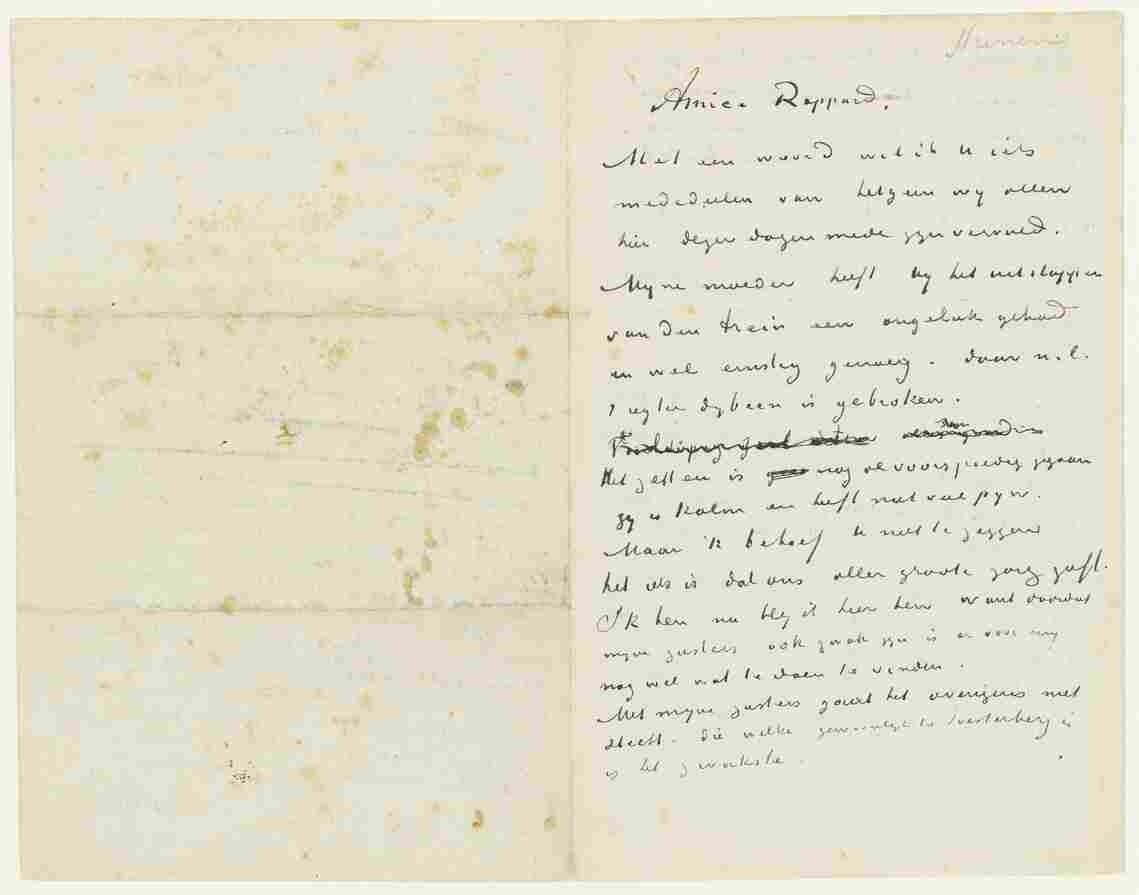 Nuenen
Amice Rappard,
Met een woord wil ik U iets
mededeelen van hetgeen wy allen
hier dezer dagen mede zyn vervuld.
Myne moeder heeft by het uitstappen
van den trein een ongeluk gehad
en wel ernstig genoeg. daar n.l.
't regter dybeen is gebroken.
Het zetten is nog al voorspoedig gegaan
zy is kalm en heeft niet veel pyn.
Maar 'k behoef U niet te zeggen
het iets is dat ons allen groote zorg geeft.
Ik ben nu bly ik hier ben want doordat
myne zusters ook zwak zyn is er voor my
nog wel wat te doen te vinden.
Met myne zusters gaat het overigens niet
slecht. die welke gewoonlyk te Soesterberg is
is het zwakste.